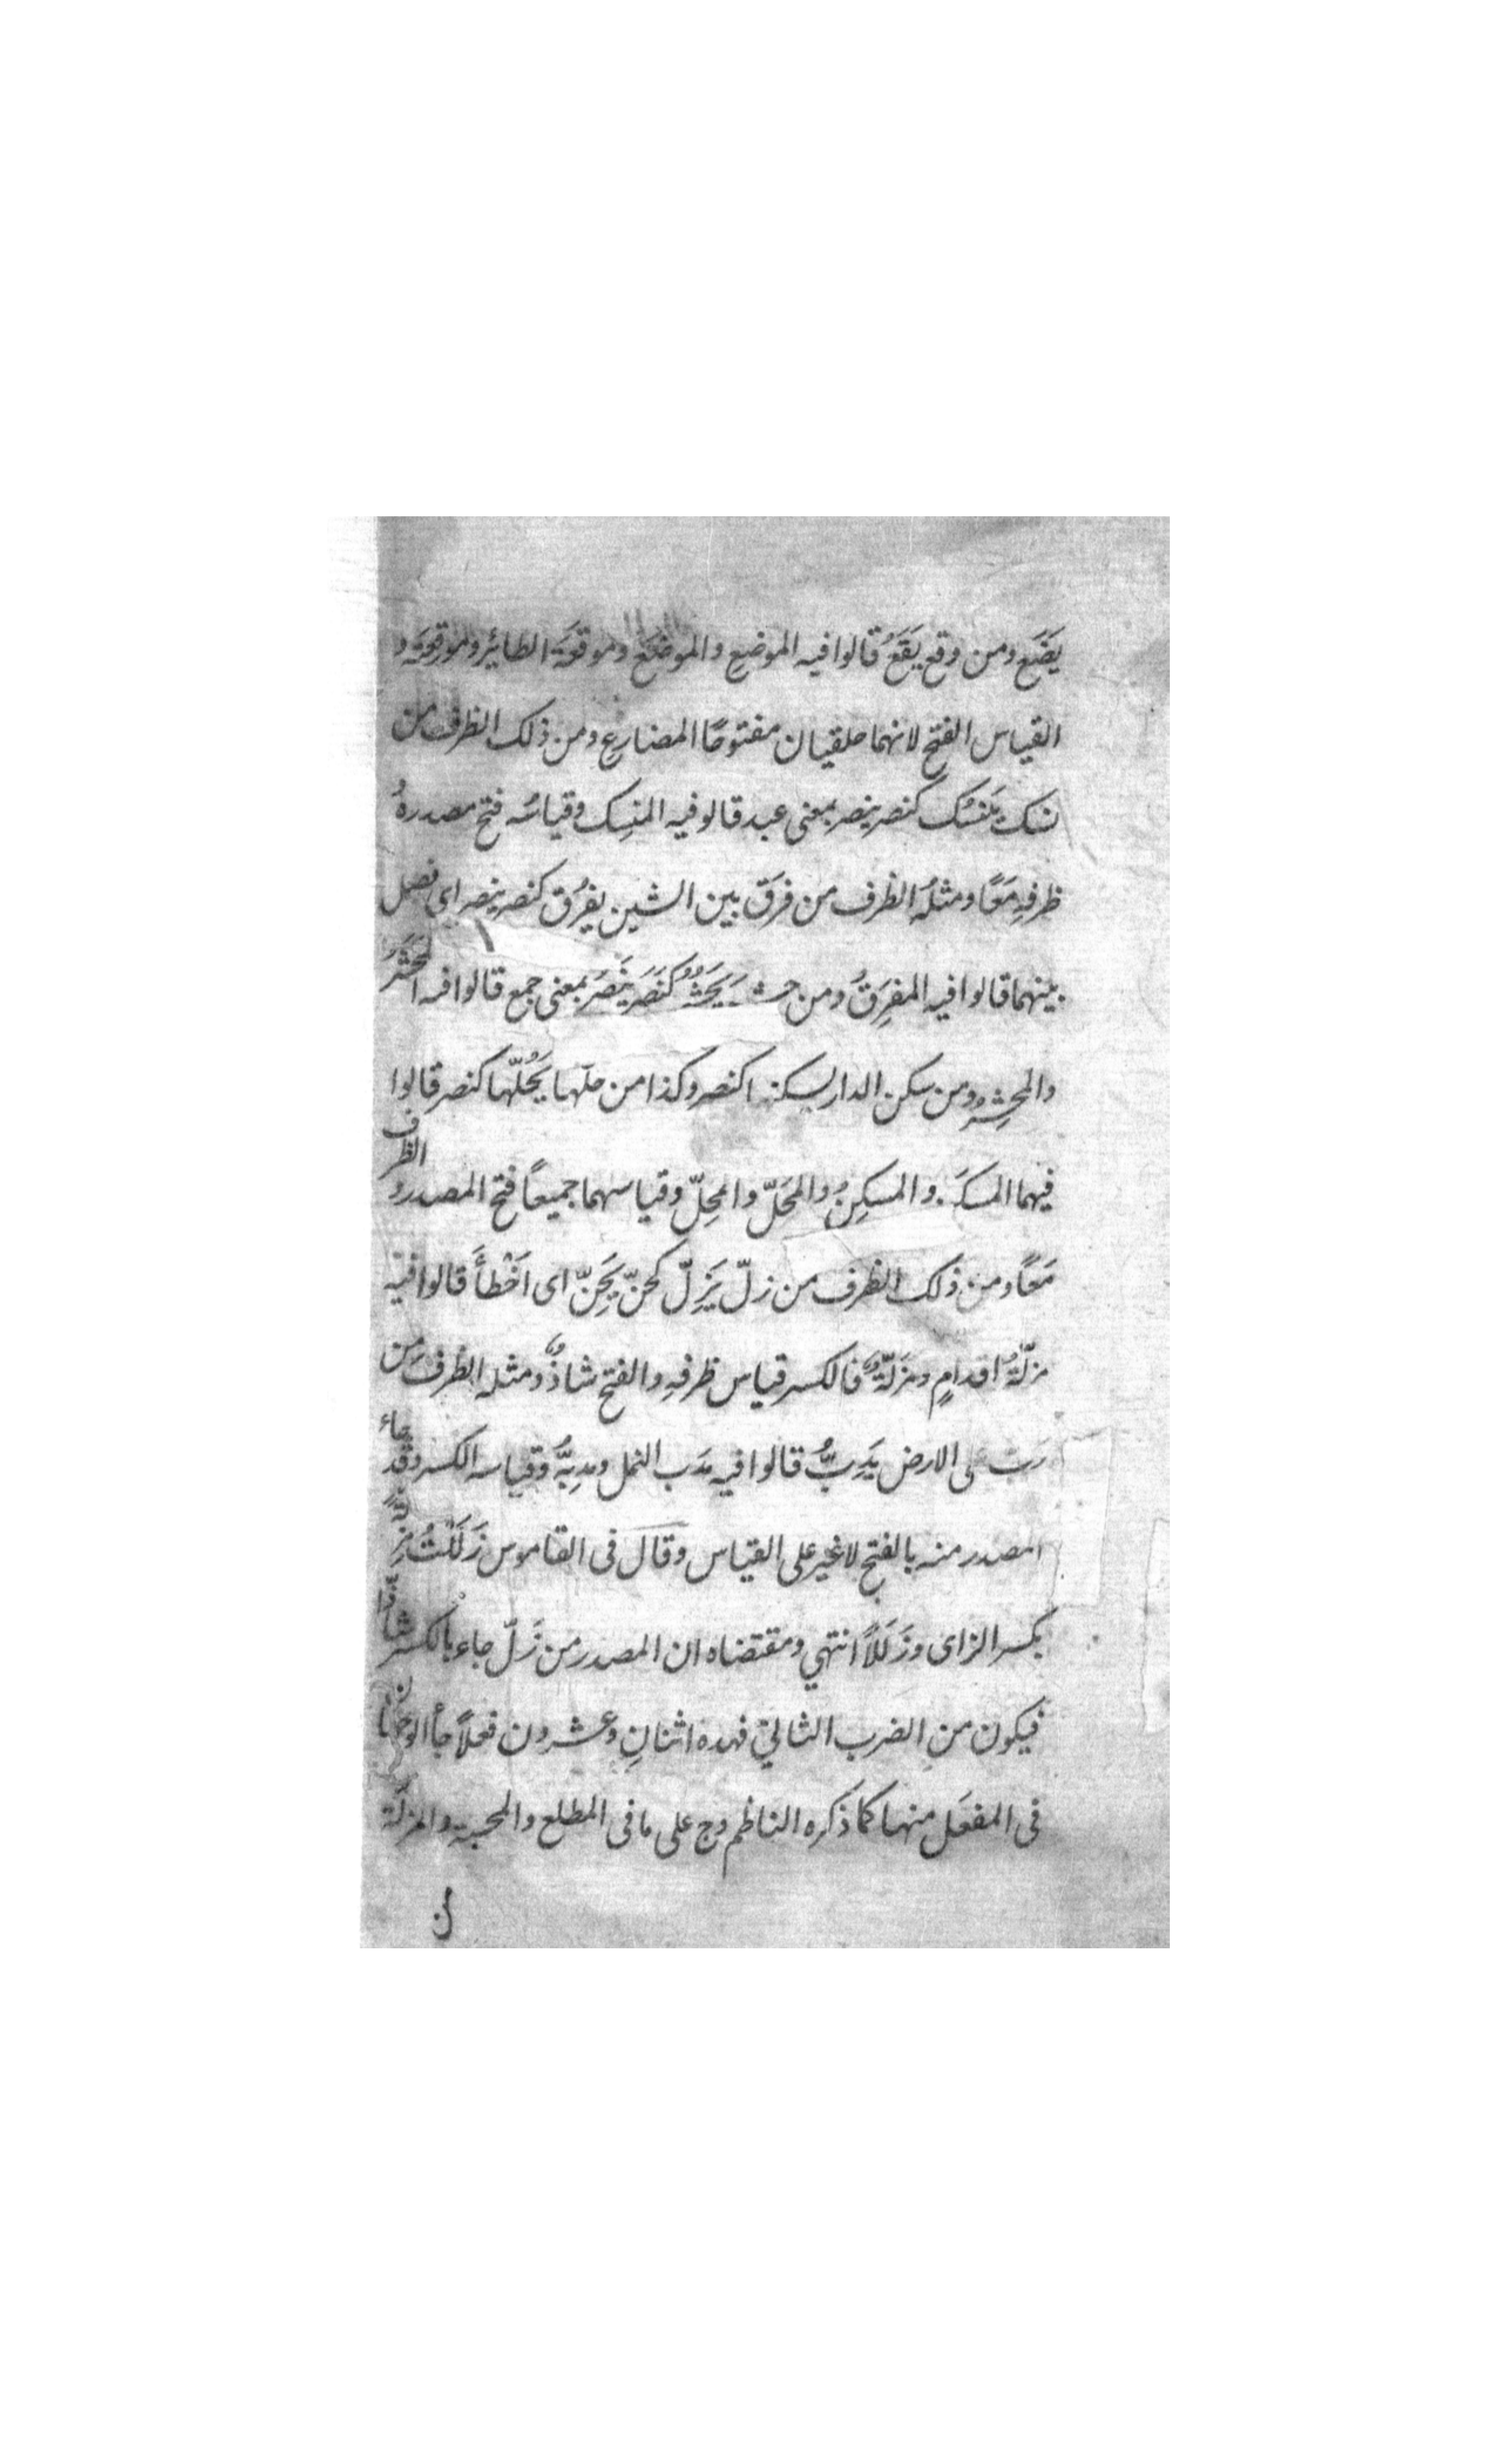 يَضَع ومن وقع يَقَعُ قالوا فيه الموضِع والموضَع وموقعَة الطائر وموقِعَه و
القياس الفتح لانهما حلقيان مفتوحًا المضارع ومن ذلك الظرف من
نسك يَنسُك كنصر ينصر بمعنى عبد قالو فيه المنسِك وقياسُه فتح مصدرهُ
ظرفهِ مَعًا ومثلهُ الظرف من فرَق بين الشيين يفرُق كنصر ينصر اى فصل
بينهما قالوا فيه المفرِقُ ومن يَحشُرُ كنَصَرَ يَنصُرَ بمعنى جمع قالوا فيه المحشَرُ
والمحشِرُ ومن سكن الدار يسكنها كنصر وكذا من حلّها يَحُلّها كنصر قالوا
فيهما والمسكِنُ والمحَلّ والمحِلّ وقياسهما جميعاً فتح المصدر و الظرف
مَعًا ومن ذلك الظرف من زلّ يَزِلّ كحنّ يَحِنّ اى اَخْطأَ قالوا فيه
مزلّةُ اقدامٍ ومزَلّةٌ فالكسر قياس ظرفهِ والفتح شاذٌّ ومثله الظرف مِن
الارض يَدِبُّ قالوا فيه مدَب النمل ومدِبُّه وقياسه الكسر وقد جاء
المصدر منه بالفتح لا غير على القياس وقال فى القاموس زَلَلْتُ
بكسر الزاى وزَلَلاً انتهى ومقتضاه ان المصدر من زَلّ جاء بالكسر
فيكون من الضرب الثالث فهده اثنانِ وعشرون فعلاً جأ الوجهان
فى المفعَل منها كما ذكره الناظم وج على ما فى المطلع والمحسبة والمزلّة